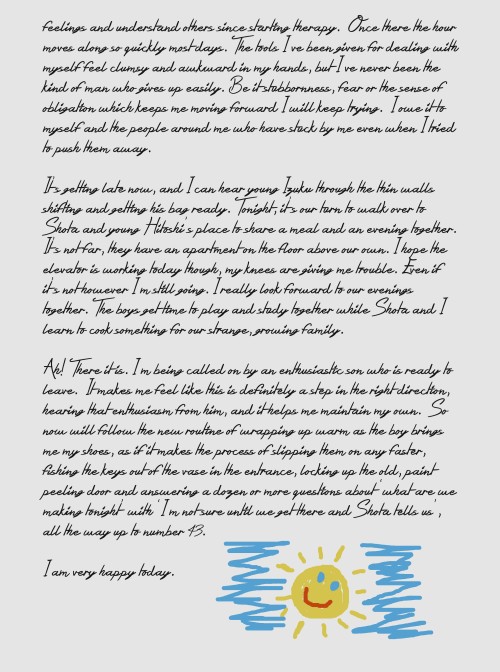 feelings and understand others since starting therapy. Once there the hour
moves along so quickly most days. The tools I've been given for dealing with
myself feel clumsy and awkward in my hands, but I've never been the
kind of man who gives up easily. Be it stubbornness, fear or the sense of
obligation which keeps me moving forward I will keep trying. I owe it to
myself and the people around me who have stuck by me even when I tried
to push them away.
It's getting late now, and I can hear young Izuku through the thin walls
shifting and getting his bag ready. Tonight, it's our turn to walk over to
Shota and young Hitoshi's place to share a meal and an evening together.
It's not far, they have an apartment on the floor above our own. I hope the
elevator is working today though, my knees are giving me trouble. Even if
it's not however I'm still going. I really look forward to our evenings
together. The boys get time to play and study together while Shota and I
learn to cook something for our strange, growing family.
Ah! There it is. I'm being called on by an enthusiastic son who is ready to
leave. It makes me feel like this is definitely a step in the right direction,
hearing that enthusiasm from him, and it helps me maintain my own. So
now will follow the new routine of wrapping up warm as the boy brings
me my shoes, as if it makes the process of slipping them on any faster,
fishing the keys out of the vase in the entrance, locking up the old, paint
peeling door and answering a dozen or more questions about 'what are we
making tonight' with 'I'm not sure until we get there and Shota tells us',
all the way up to number 43.
I am very happy today.